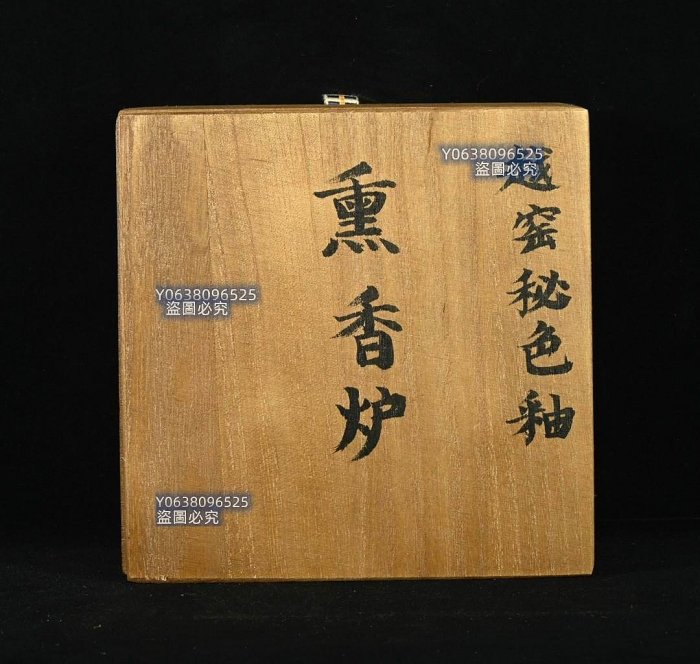 越窑秘色釉
熏香炉
Y0638096525
盜圖必究
Y0638096525
盜圖必究
Y0638096525
盜圖必究